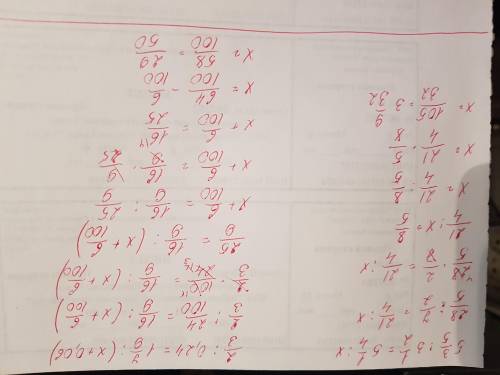 5 3/5 : 3 1/2 = 5 1/4 : x
28/5 : 7/2 = 21/4 : x
28/5 · 2/7 = 21/4 : x
21/4 : x = 8/5
x = 21/4 : 8/5
x = 21/4 · 5/8
x = 105/32 = 3 9/32
2/3 : 0,24 = 1 7/9 : (x + 0,06)
2/3 : 24/100 = 16/9 : (x + 6/100)
2/3 · 100/24 = 16/9 : (x + 6/100)
25/9 = 16/9 : (x + 6/100)
x + 6/100 = 16/9 : 25/9
x + 6/100 = 16/9 · 9/25
x + 6/100 = 16/25
x = 64/100 - 6/100
x = 58/100 = 29/50